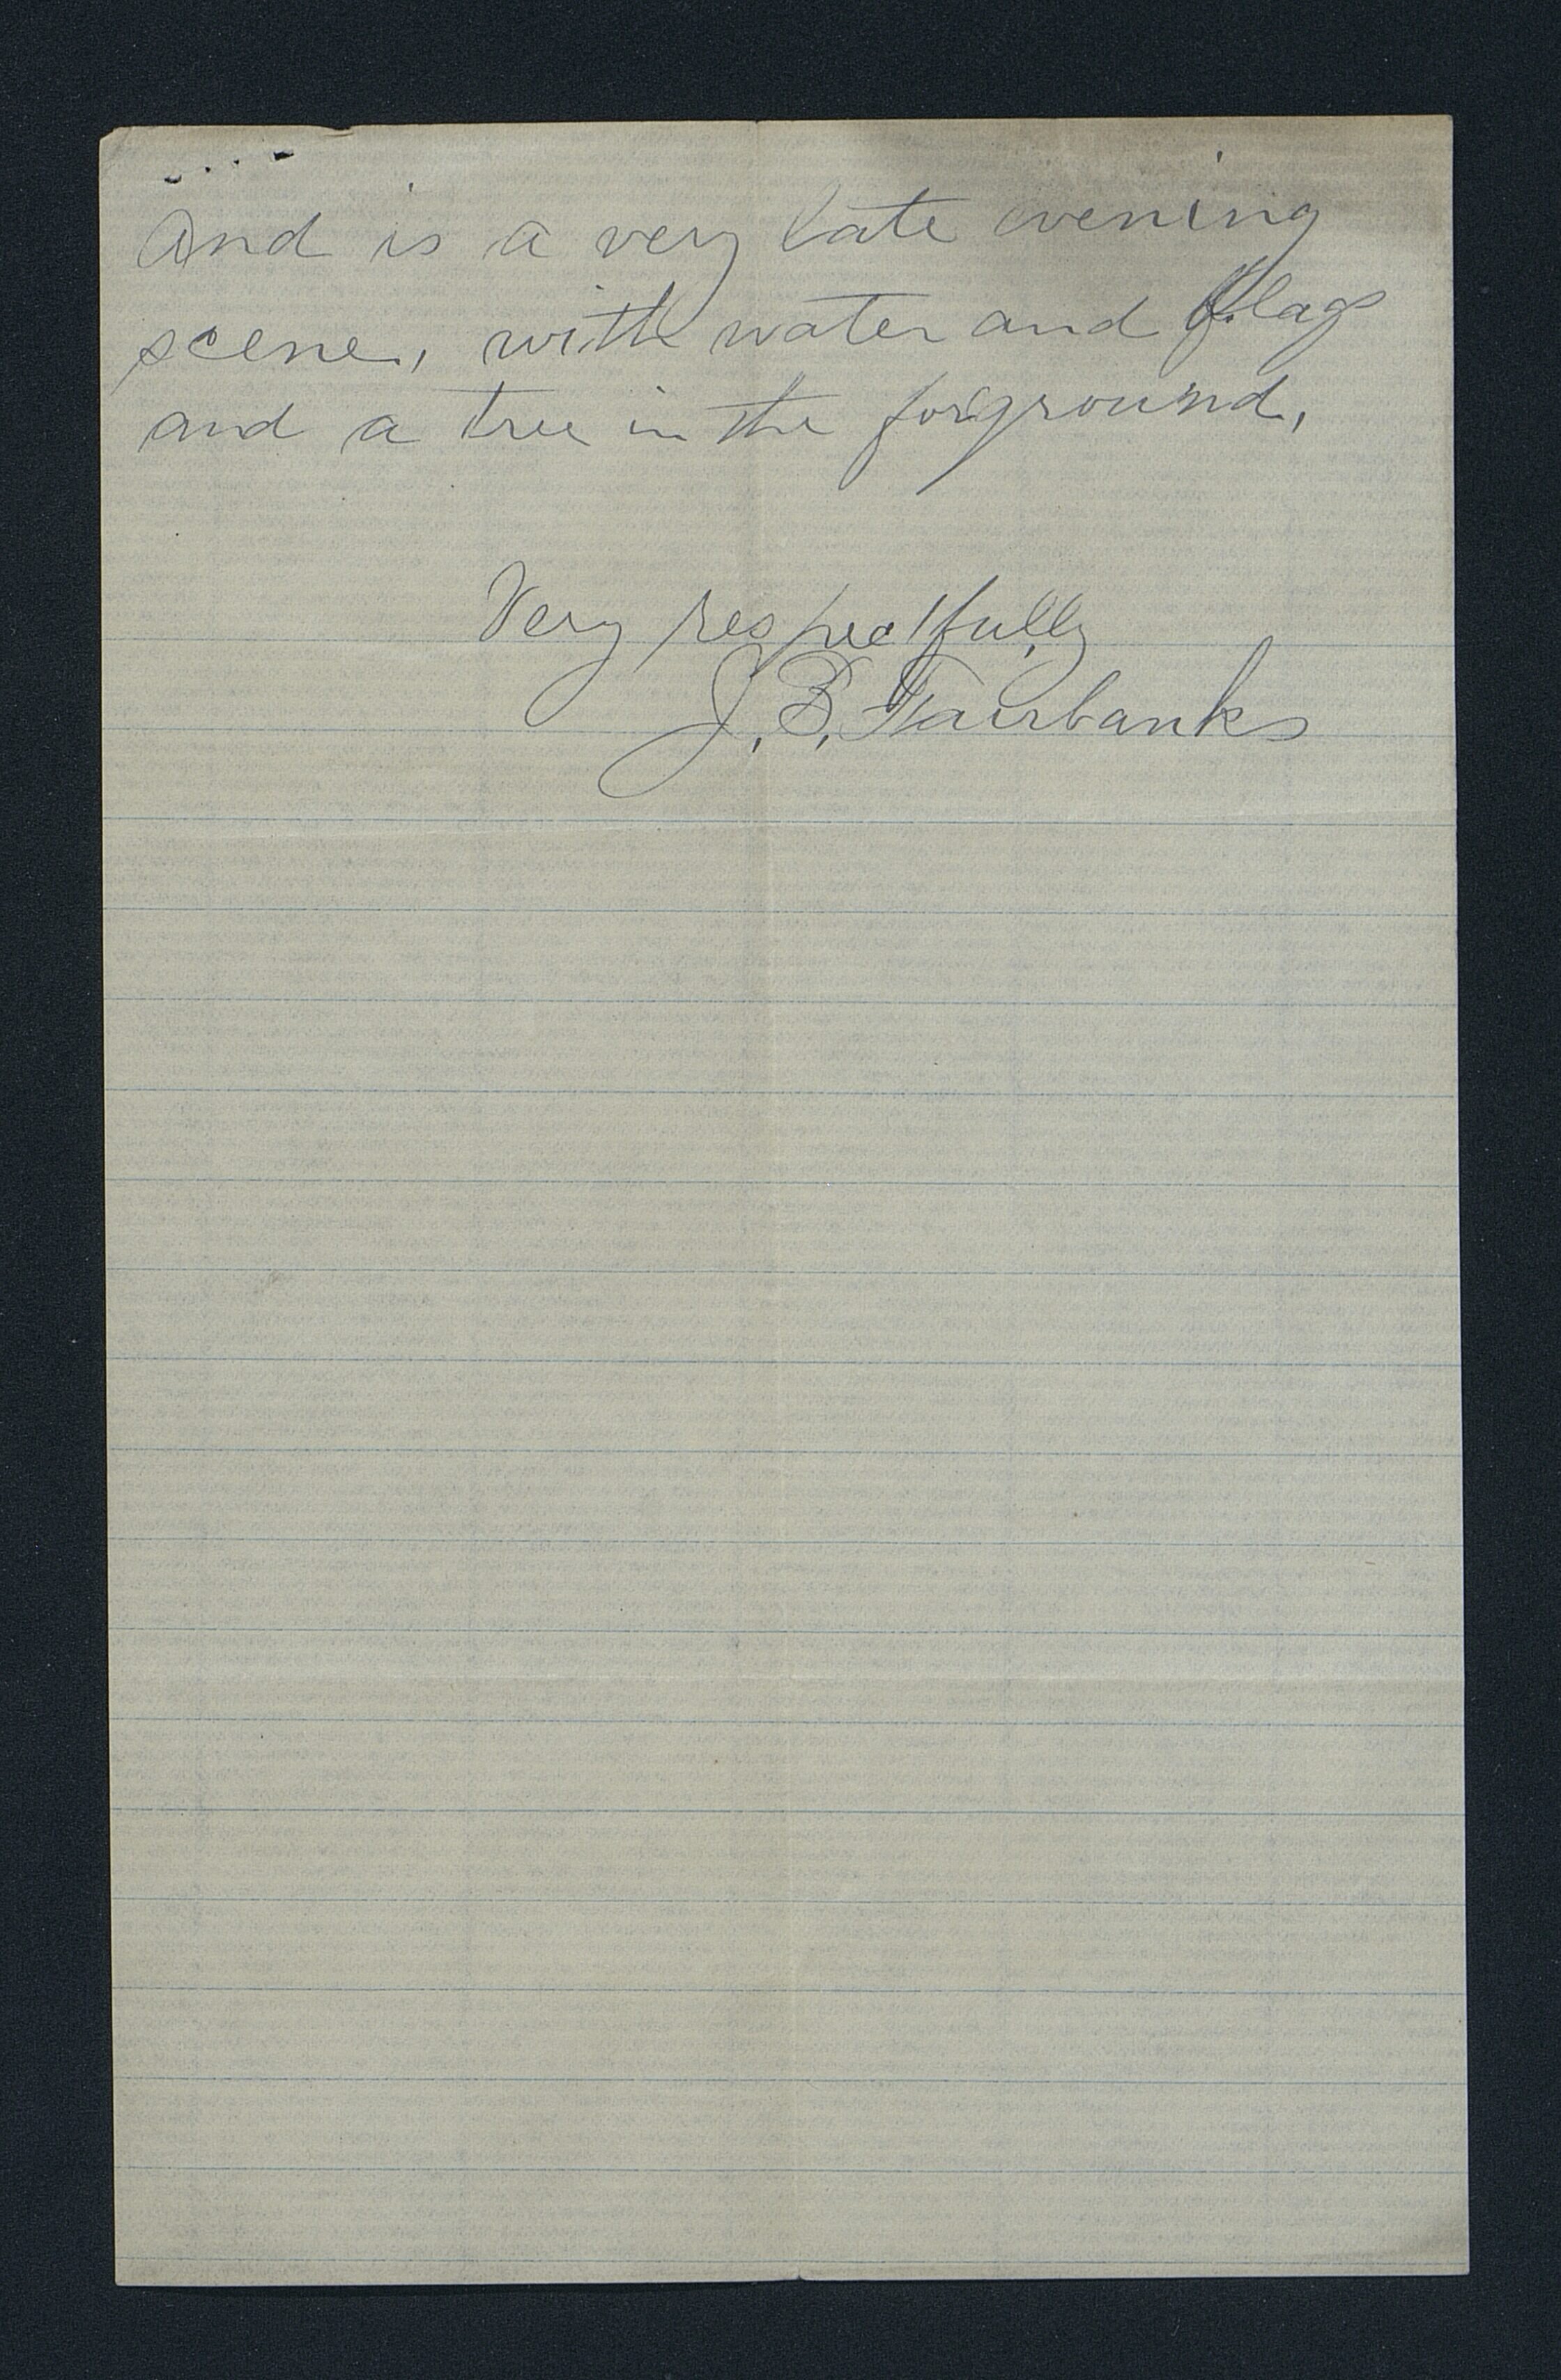 And is a very late evening
scene, with water and flags
and a tree in the forground,
Very respectfully
J. B. Fairbanks